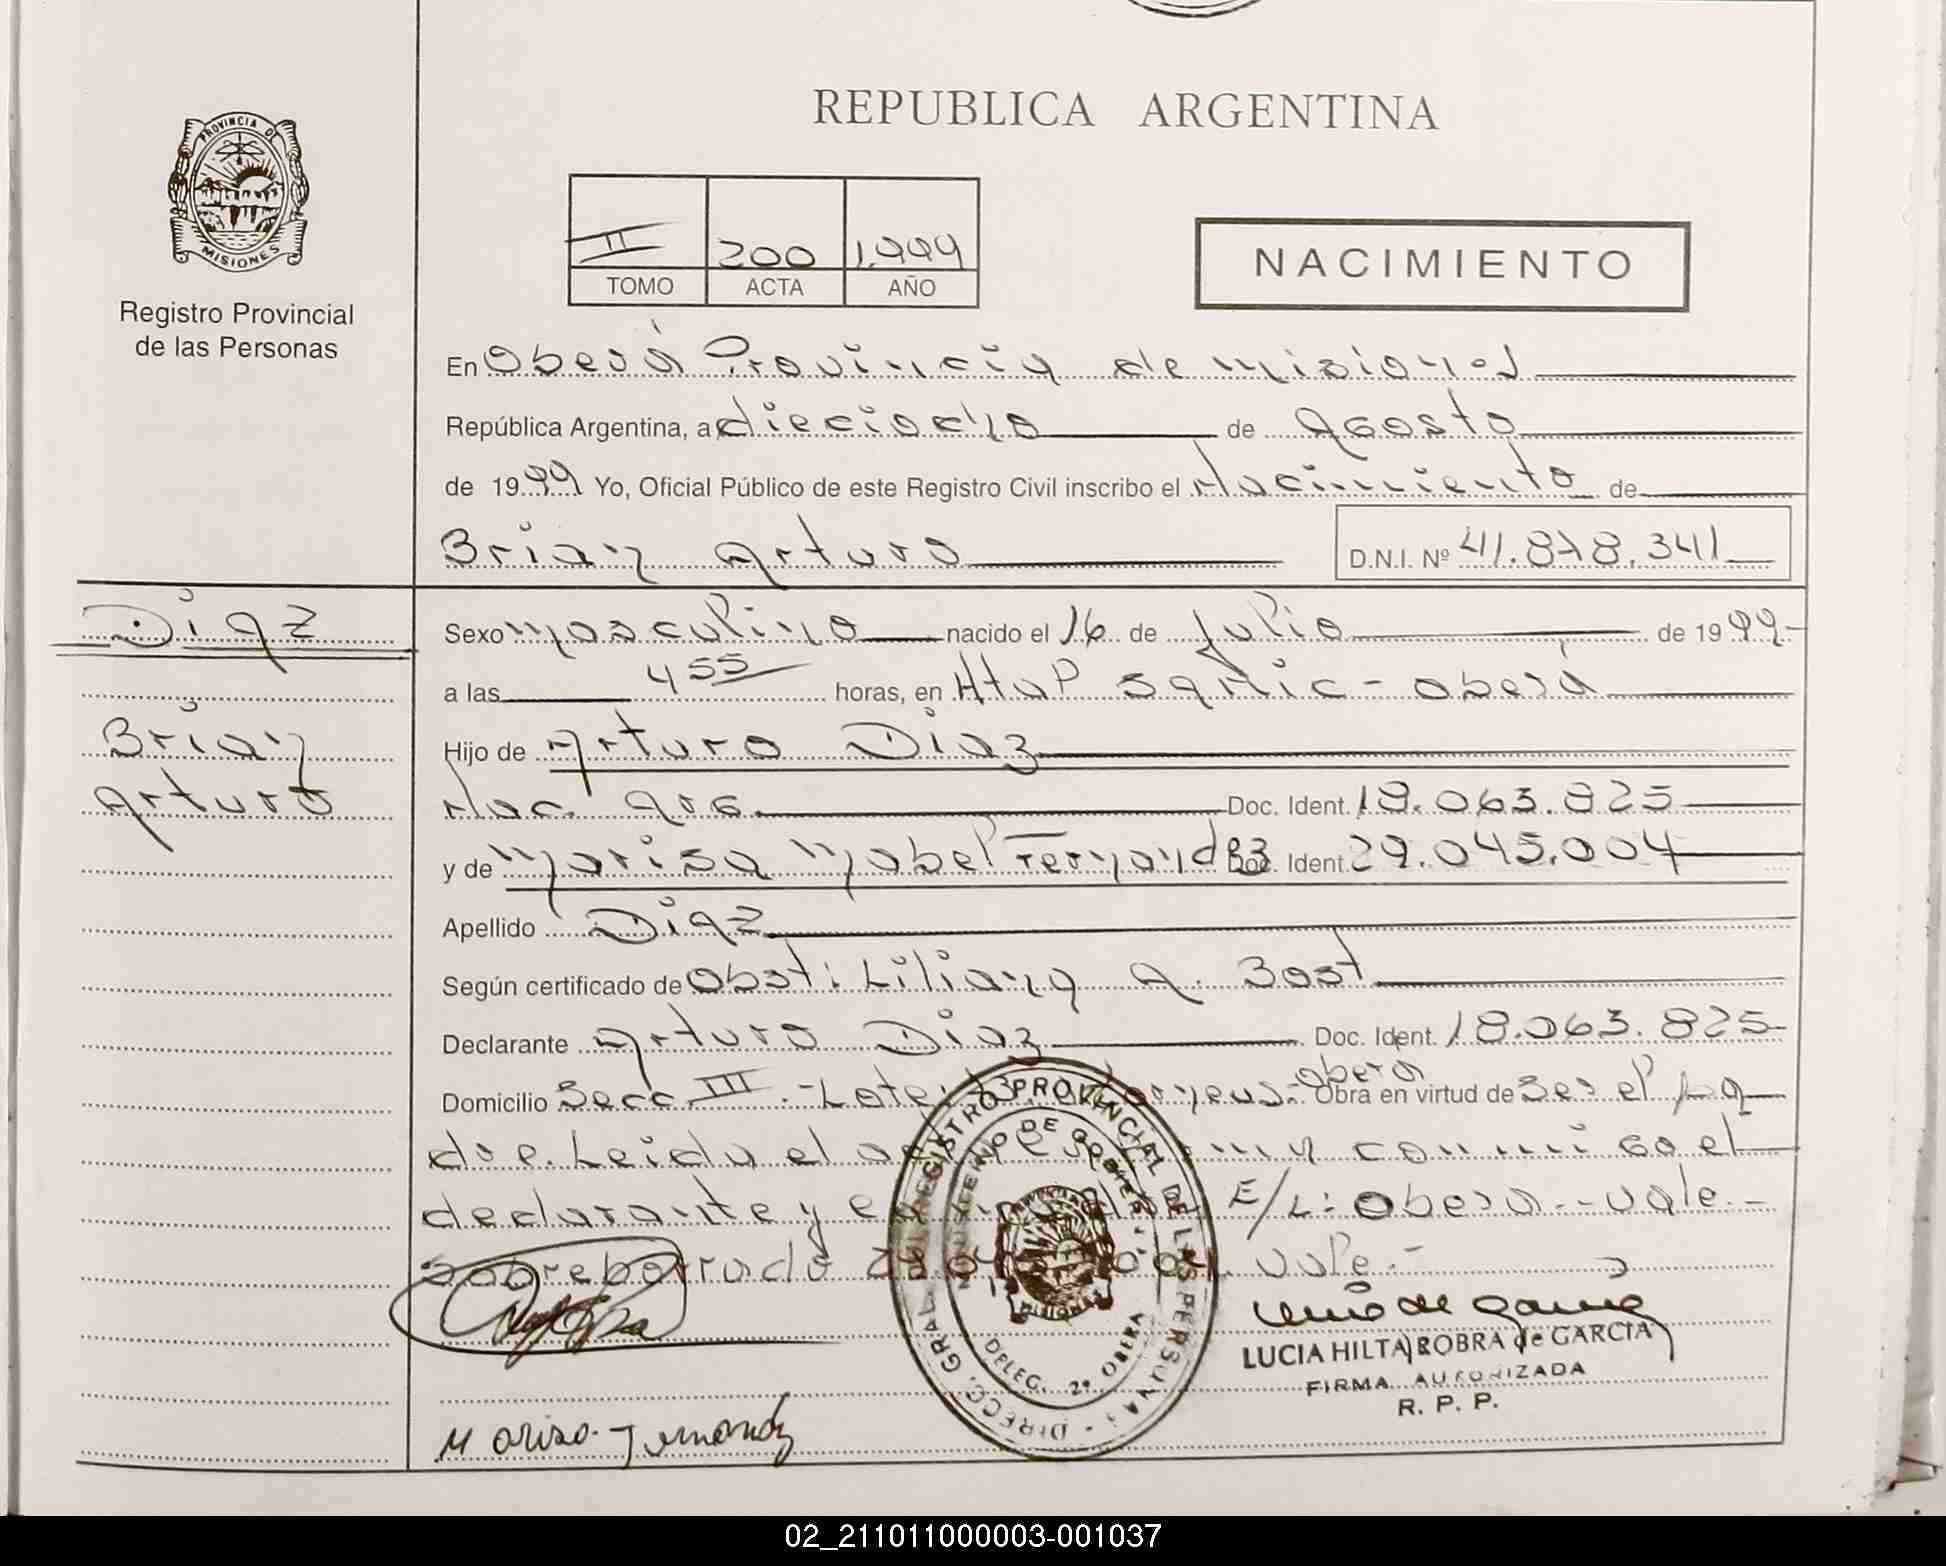 REPUBLICA ARGENTINA
PROVINCIA DE
MISIONES
Registro Provincial
de las Personas
II 200 1.999
TOMO ACTA AÑO
NACIMIENTO
En Oberá Provincia de Misiones
República Argentina, a dieciocho de Agosto
de 1999 Yo, Oficial Público de este Registro Civil inscribo el Nacimiento de
Brian Arturo D.N.I. Nº 41.878.341
Diaz
Brian
Arturo
Sexo Masculino nacido el 16 de Julio de 1999-
a las 4 55 horas, en Htal Samic - Oberá
Hijo de Arturo Diaz
Nac. Arg. Doc. Ident. 18.063.825
y de Marisa Mabel Fernandez Doc. Ident. 29.045.004
Apellido Diaz
Según certificado de Obst: Liliana A. Bost
Declarante Arturo Diaz Doc. Ident. 18.063.825-
Domicilio Secc. III - Lote Obera Obra en virtud de Ser el pa
dre. Leida el conmigo el
declarante y E/L: Obera.- vale.-
Sobreborrado vale.-
DIRECC. GRAL. DEL REGISTRO PROVINCIAL DE LAS PERSONAS
MINISTERIO DE GOBIERNO
MISIONES
DELEG. 2º OBERA
LUCIA HILTA ROBRA de GARCIA
FIRMA AUTORIZADA
R. P. P.
Marisa Fernandez
02_211011000003-001037